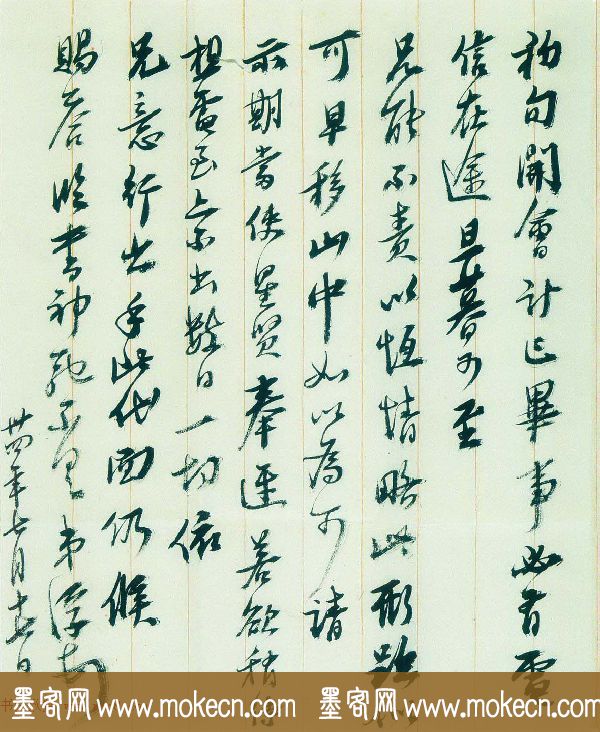 初旬開會計已畢事必有電
信在途旦暮可至
兄能不責以恆情略此形跡
可早移山中如以為可請
示期當使星賢奉迓若欲稍
電至亦不出數日一切依
兄意行止手此代面仍候
賜答臨書神馳不具 弟浮
卅四年七月日
墨客网 www.mokecn.com 墨客网 www.mokecn.com